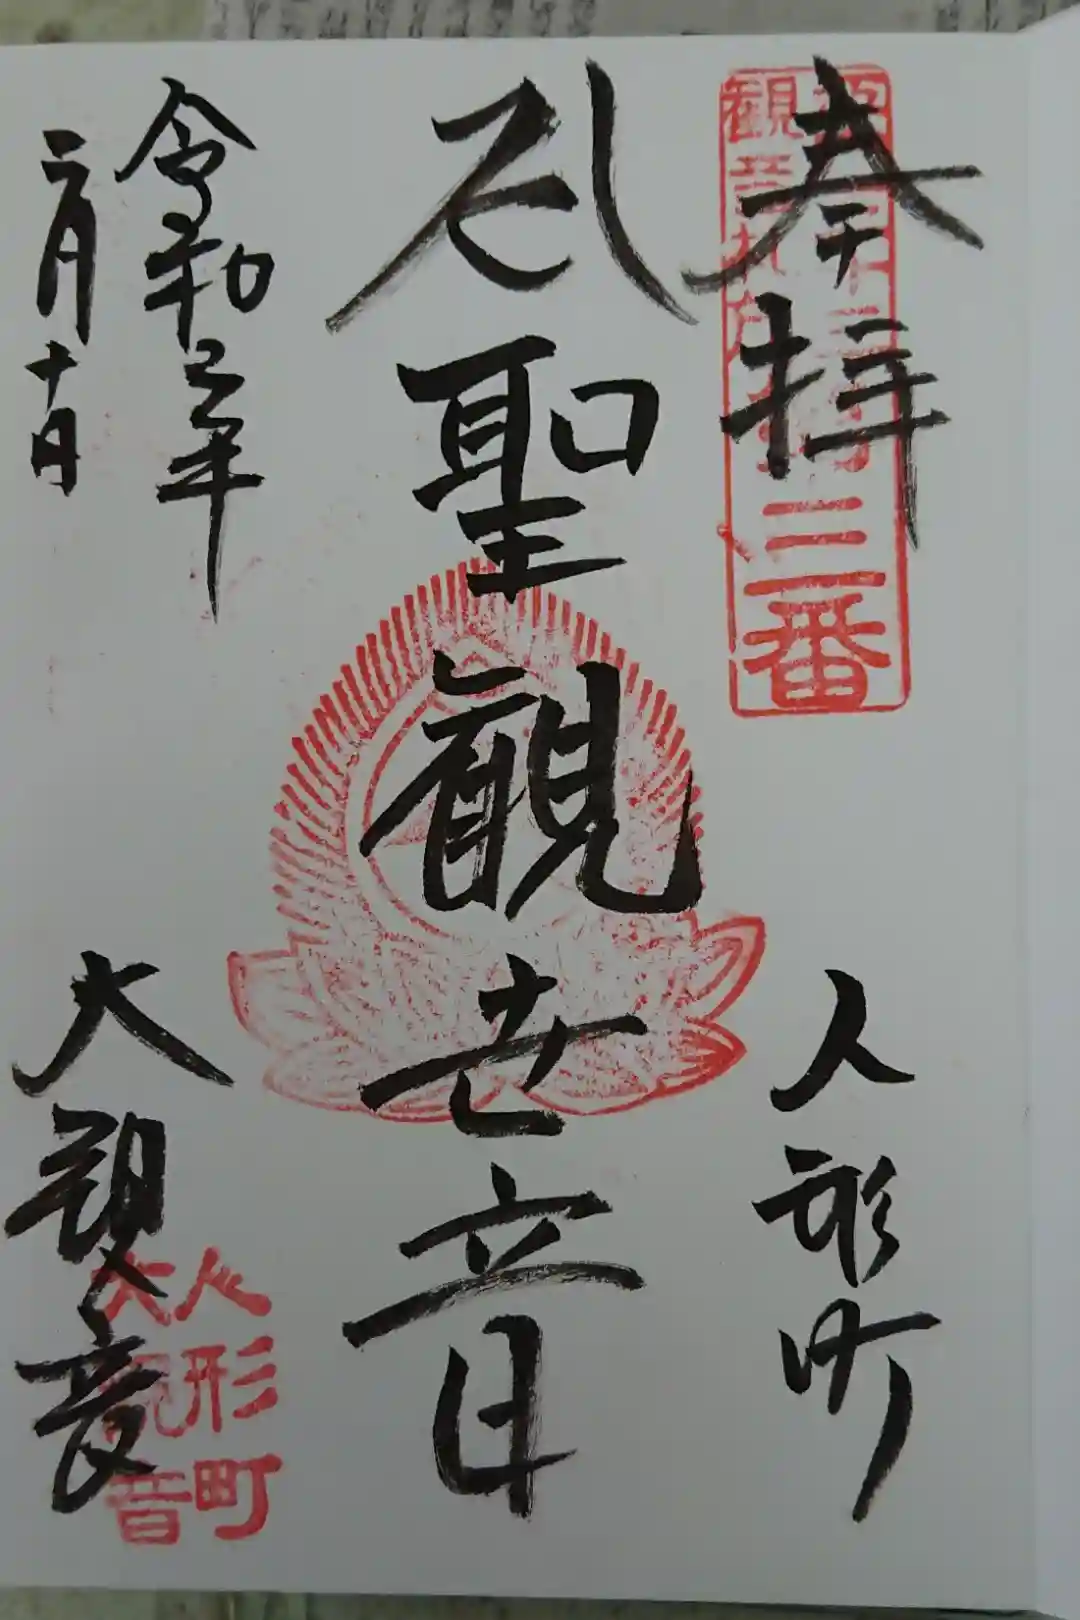 奉拝
観音札所
三番
人形町
聖観世音
令和三年
二月十日
大観音
人形町
大観音